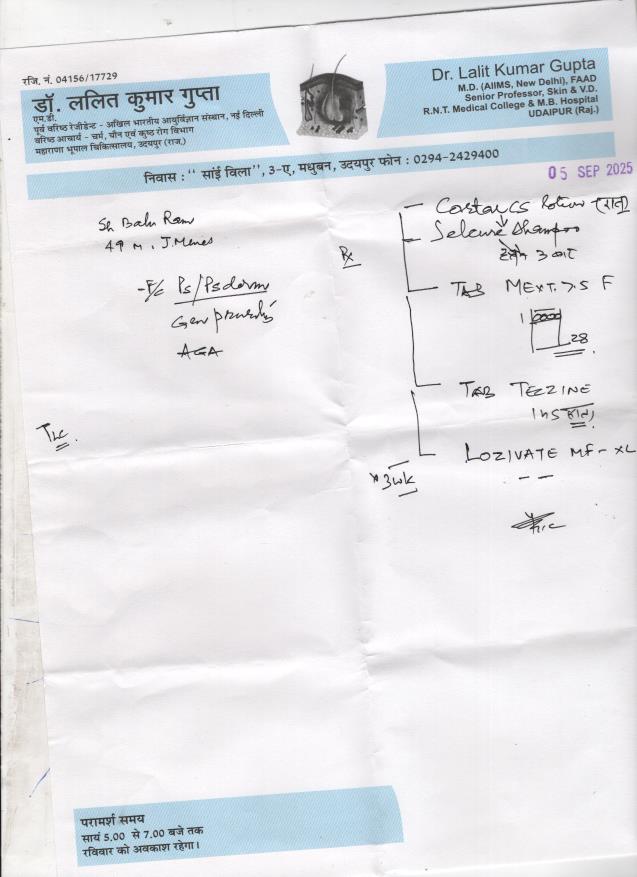 रजि. नं. 04156/17729
डॉ. ललित कुमार गुप्ता
एम.डी.
पूर्व वरिष्ठ रेजीडेन्ट - अखिल भारतीय आयुर्विज्ञान संस्थान, नई दिल्ली
वरिष्ठ आचार्य - चर्म, यौन एवं कुष्ठ रोग विभाग
महाराणा भूपाल चिकित्सालय, उदयपुर (राज.)
Dr. Lalit Kumar Gupta
M.D. (AIIMS, New Delhi), FAAD
Senior Professor, Skin & V.D.
R.N.T. Medical College & M.B. Hospital
UDAIPUR (Raj.)
निवास : '' सांई विला'', 3-ए, मधुबन, उदयपुर फोन : 0294-2429400
05 SEP 2025
Sh Babu Ram
49 M
Ps/Psderm
Gen
AGA
Rx
Lotion
Shampoo
3 बार
TAB MEXT 7.5 F
1
28
TAB TECZINE
1
LOZIVATE MF - XL
3 wk
परामर्श समय
सायं 5.00 से 7.00 बजे तक
रविवार को अवकाश रहेगा।